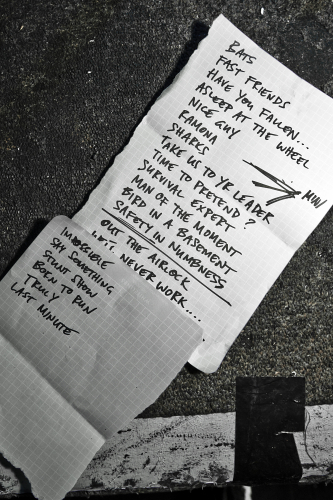 BATS
FAST FRIENDS
HAVE YOU FALLEN...
ASLEEP AT THE WHEEL
NICE GUY
RAMONA
SHARKS
TAKE US TO YR LEADER
TIME TO PRETEND?
SURVIVAL EXPERT
MAN OF THE MOMENT
BIRD IN A BASEMENT
SAFETY IN NUMBNESS
OUT THE AIRLOCK
NEVER WORK....
IMPOSSIBLE
SAY SOMETHING
STUNT SHOW
BORN TO RUN
TRULY
LAST MINUTE